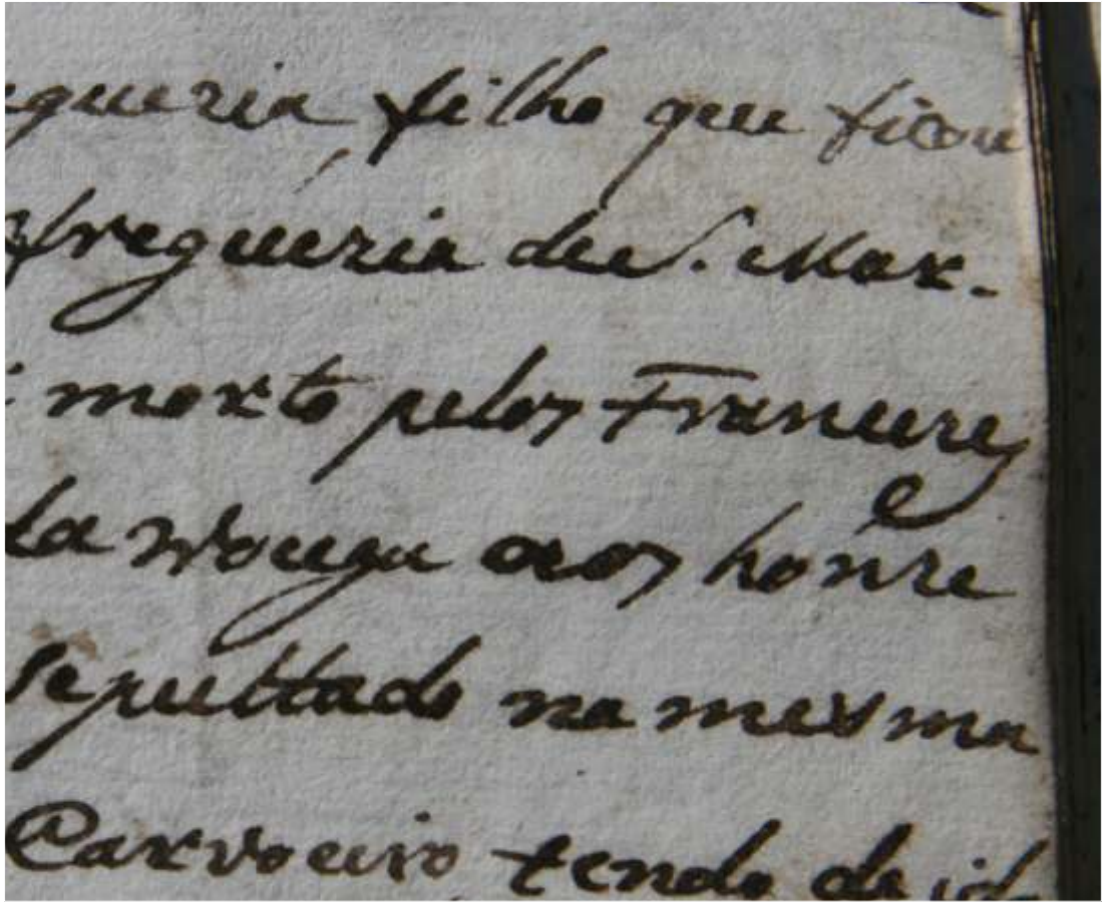 gueria filho que ficou
freguezia de S. Mar-
morto pelos Francezes
da Vouga aos honze
sepultado na mesma
Carvoeiro tendo de id